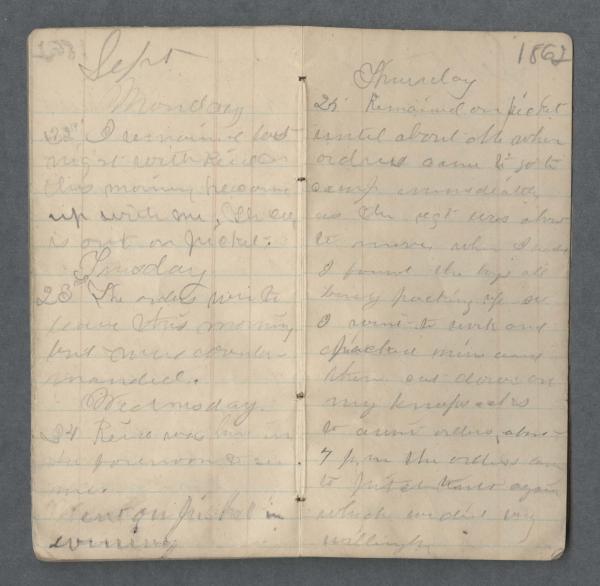 Sept
Monday
22 I remained last
night with Reid
this morning he came
up with me. The
is out on picket.
Tuesday
23 The orders were to
leave this morning
but were counter-
manded.
Wednesday.
24 Reid was here in
the forenoon to see
me.
Went on picket in
evening
1862
Thursday
25 Remained on picket
until about when
orders came to go to
camp immediately
as the regt was about
to move, when I
I found the boys all
busy packing up so
I went to work and
packed mine and
then sat down on
my knapsacks
to await orders, about
7 p.m the orders came
to pitch tents again
which we did very
willingly